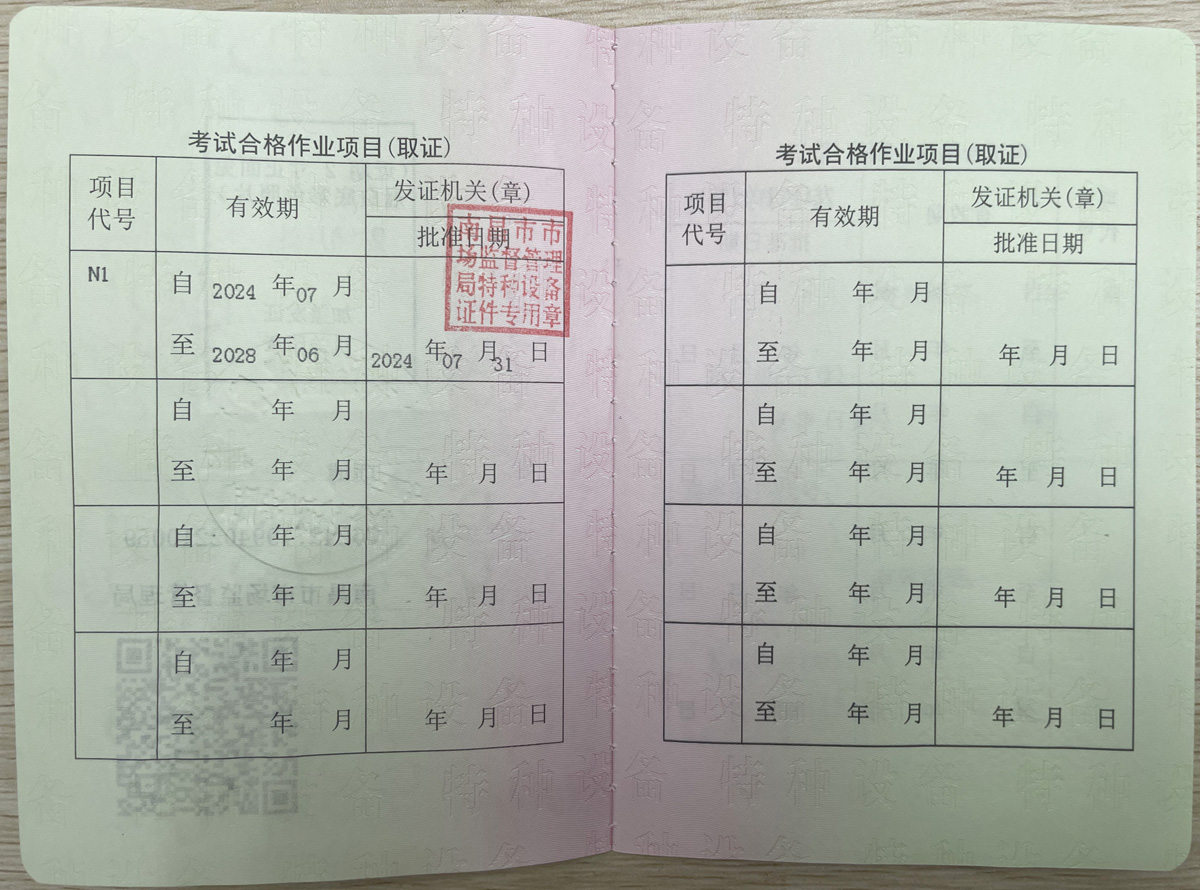 考试合格作业项目(取证)
项目
代号
有效期
发证机关(章)
批准日期
南昌市市
场监督管理
局特种设备
证件专用章
N1
自 2024 年 07 月
至 2028 年 06 月
2024 年 07 月 31 日
自 年 月
至 年 月
年 月 日
自 年 月
至 年 月
年 月 日
自 年 月
至 年 月
年 月 日
考试合格作业项目(取证)
项目
代号
有效期
发证机关(章)
批准日期
自 年 月
至 年 月
年 月 日
自 年 月
至 年 月
年 月 日
自 年 月
至 年 月
年 月 日
自 年 月
至 年 月
年 月 日